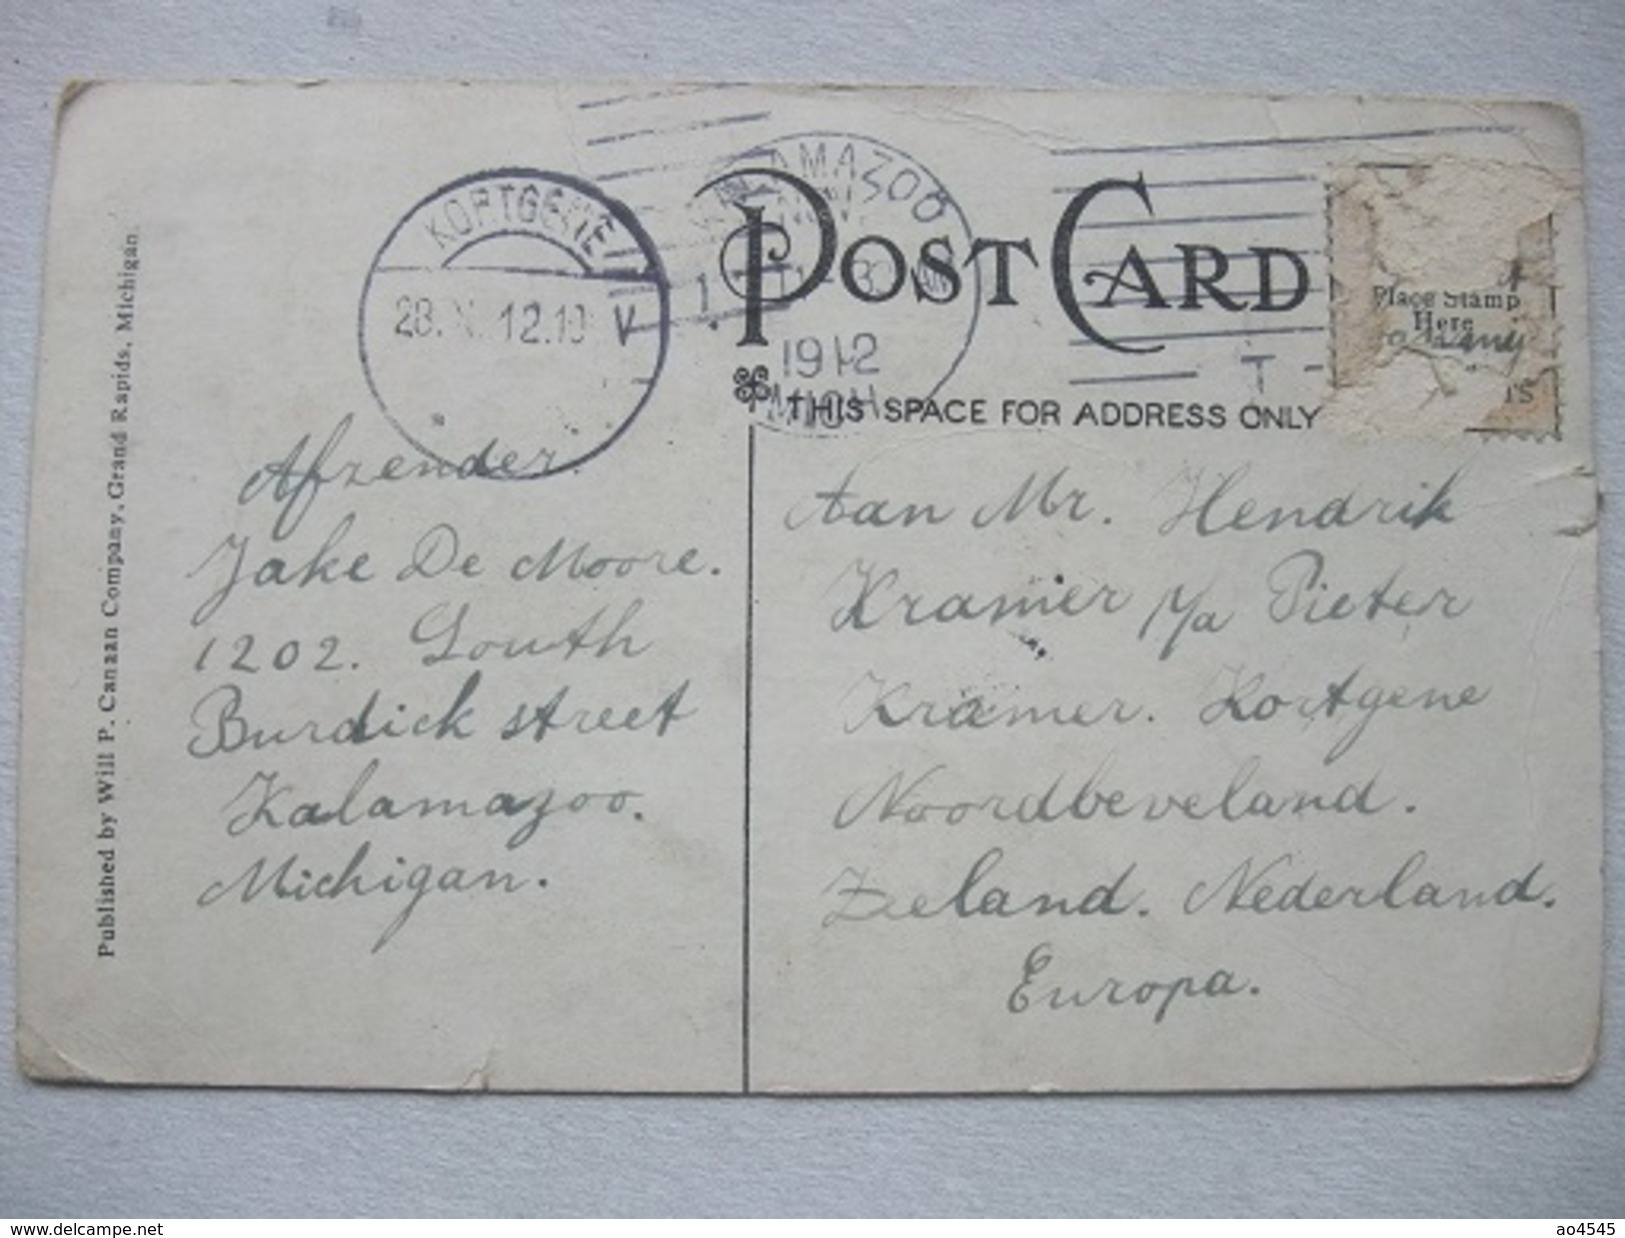 KORTGENE
28. X. 12.10 V
KALAMAZOO
1912
MICH.
T
POST CARD
THIS SPACE FOR ADDRESS ONLY
Place Stamp
Here
Published by Will P. Canaan Company, Grand Rapids, Michigan
Afzender.
Jake De Moore.
1202. South
Burdick street
Kalamazoo.
Michigan.
Aan Mr. Hendrik
Kramer p/a Pieter
Kramer. Kortgene
Noordbeveland.
Zeeland. Nederland.
Europa.
www.delcampe.net
ao4545